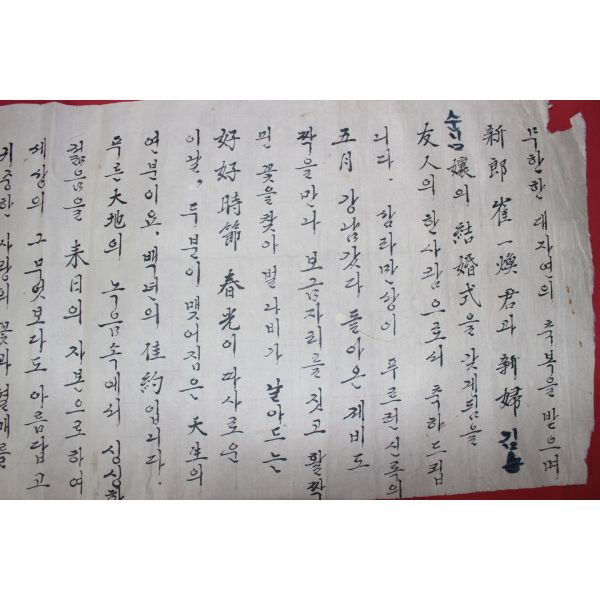 무한한 대자연의 축복을 받으며
新郎 崔一煥君과 新婦 김
순임 孃의 結婚式을 갖게됨을
友人의 한사람으로서 축하드립
니다. 삼라만상이 푸르런 신록의
五月 강남갔다 돌아온 제비도
짝을 만나 보금자리를 짓고 활짝
핀 꽃을 찾아 벌나비가 날아드는
好好時節 春光이 따사로운
이날, 두분이 맺어짐은 天生의
연분이요, 백년의 佳約입니다.
푸른 天地의 녹음속에서 싱싱한
젊음을 来日의 자본으로하여
세상의 그 무엇보다도 아름답고
귀중한 사랑의 꽃과 열매를